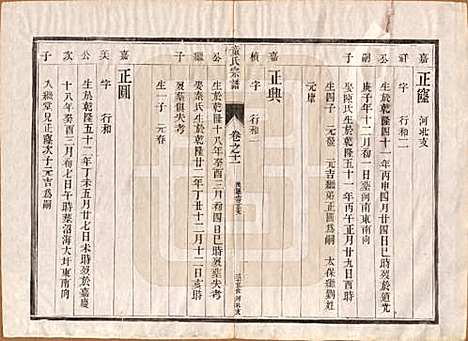 嘉 正窪 河北支
祥 字 行和二
公 生於乾隆四十一年丙申四月廿四日巳時歿於道光
嗣 庚子年十二月初一日葬河南東南向
子 娶陸氏生於乾隆五十一年丙午正月廿九日酉時
生四子 元盤 元吉繼姪正圓爲嗣 太保繼劉姓
元康
嘉 正興
楨 字 行和二
公 生於乾隆十八年癸酉三月初四日時歿失考
繼 娶秦氏生於乾隆廿二年丁丑十二月十二日亥時
子 歿葬俱失考
生一子 元春
童氏宗譜
卷之十一
嘉 正圓
字 行和
公 生於乾隆五十二年丁未五月廿七日未時歿於嘉慶
次 十八年癸酉二月初七日午時葬沼海大圩東南向
子 入繼堂兄正窪次子元吉爲嗣